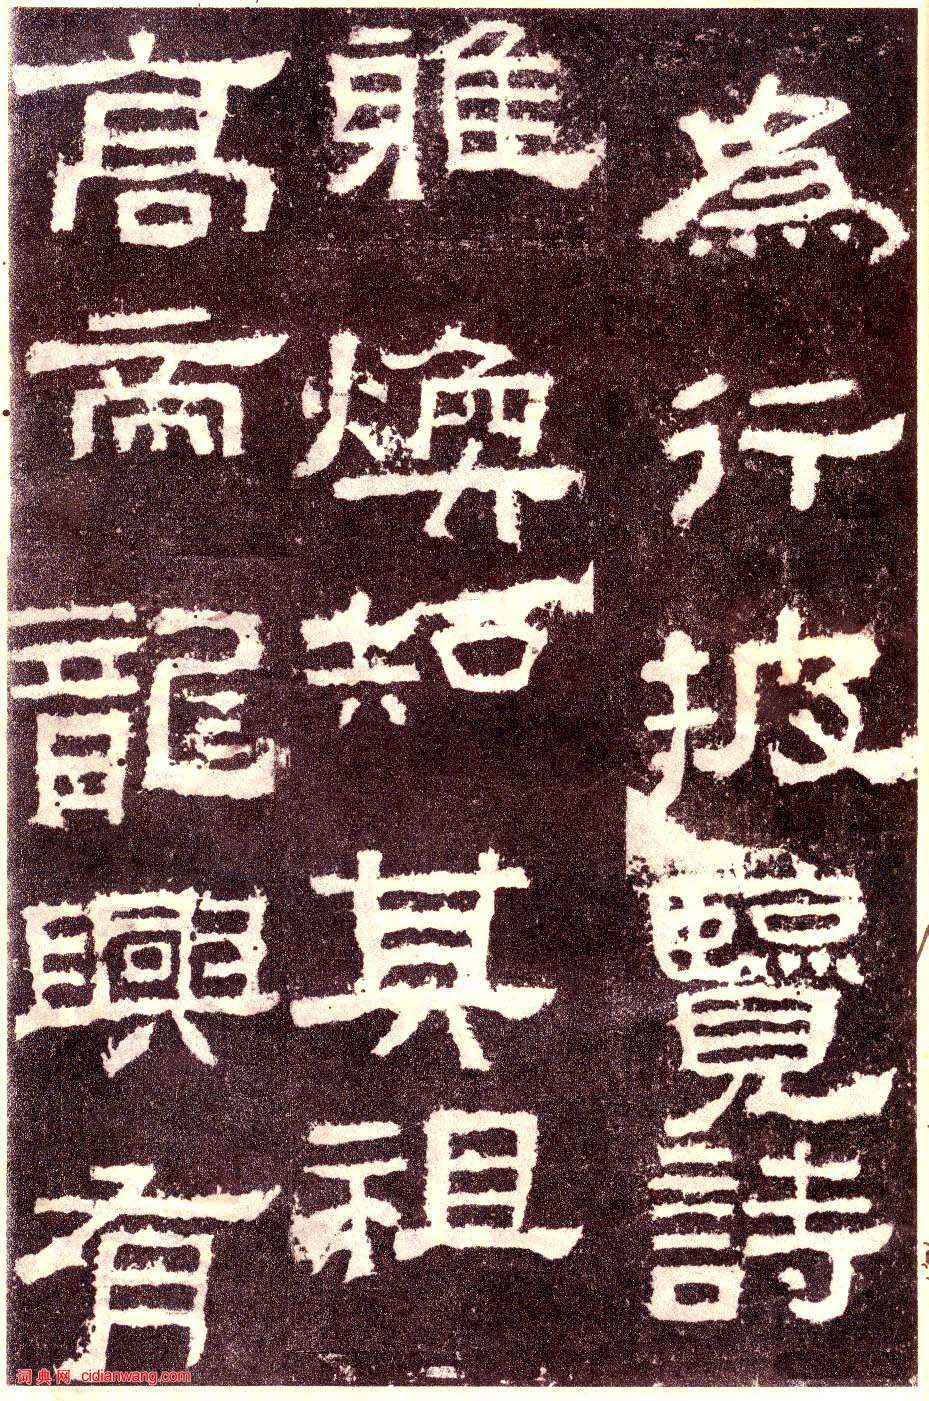 為行披覽詩
雅煥知其祖
高帝龍興有
词典网 cidianwang.com